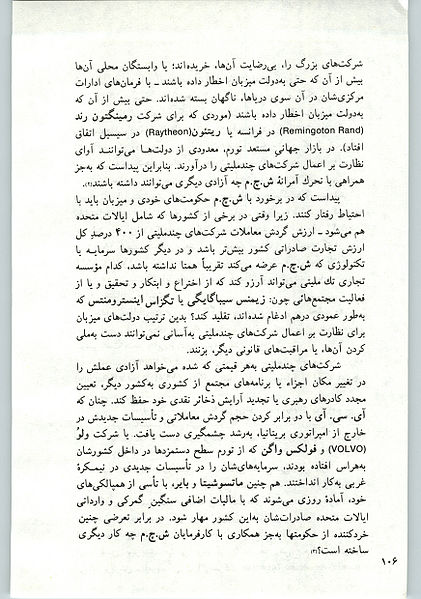 شرکت‌های بزرگ را، بی‌رضایت آن‌ها، خریده‌اند؛ یا وابستگان محلی آن‌ها
بیش از آن که حتی به‌دولت میزبان اخطار داده باشند ـ با فرمان‌های ادارات
مرکزی‌شان در آن سوی دریاها، ناگهان بسته شده‌اند. حتی بیش از آن که
به‌دولت میزبان اخطار داده باشند (موردی که برای شرکت رمینگتون رند
(Remingoton Rand) در فرانسه یا ریتئون (Raytheon) در سیسیل اتفاق
افتاد). در بازار جهانیِ مستعد تورم، معدودی از دولت‌ها می‌توانند آوای
نظارت بر اعمال شرکت‌های چندملیتی را درآورند. بنابراین پیداست که به‌جز
همراهی با تحرك آمرانهٔ ش.چ.م چه آزادی دیگری می‌توانند داشته باشند(۲).
پیداست که در برخورد با ش.چ.م حکومت‌های خودی و میزبان باید با
احتیاط رفتار کنند. زیرا وقتی در برخی از کشورها که شامل ایالات متحده
هم می‌شود ـ ارزش گردش معاملات شرکت‌های چندملیتی از ۴۰۰ درصدِ کل
ارزش تجارت صادراتی کشور بیش‌تر باشد و در دیگر کشورها سرمایه یا
تکنولوژی که ش.چ.م عرضه می‌کند تقریباً همتا نداشته باشد، کدام مؤسسه
تجاری تك ملیتی می‌تواند آرزو کند که از اختراع و ابتکار و تحقیق و یا از
فعالیت مجتمع‌هائی چون: زیمنس سیباگایگی یا تگزاس اینسترومنتس که
به‌طور عمودی درهم ادغام شده‌اند، تقلید کند؟ بدین ترتیب دولت‌های میزبان
برای نظارت بر اعمال شرکت‌های چندملیتی به‌آسانی نمی‌توانند دست به‌ملی
کردن آن‌ها، یا مراقبت‌های قانونی دیگر، بزنند.
شرکت‌های چندملیتی به‌هر قیمتی که شده می‌خواهد آزادی عملش را
در تغییر مکان اجزاء یا برنامه‌های مجتمع از کشوری به‌کشور دیگر، تعیین
مجدد کادرهای رهبری یا تجدید آرایش ذخائر نقدی خود حفظ کند. چنان که
آی. سی. آی با دو برابر کردن حجم گردش معاملاتی و تأسیسات جدیدش در
خارج از امپراتوری بریتانیا، به‌رشد چشمگیری دست یافت. یا شرکت ولوُ
(VOLVO) و فولکس واگن که از تورم سطح دستمزدها در داخل کشورشان
به‌هراس افتاده بودند، سرمایه‌های‌شان را در تأسیسات جدیدی در نیمکرهٔ
غربی به‌کار انداختند. هم چنین ماتسوشیتا و بایر، با تأسی از همپالکی‌های
خود، آمادهٔ روزی می‌شوند که با مالیات اضافی سنگین گمرکی و وارداتی
ایالات متحده صادرات‌شان به‌این کشور مهار شود. در برابر تعرضی چنین
خردکننده از حکومتها به‌جز همکاری با کارفرمایان ش.چ.م چه کار دیگری
ساخته است؟(۳)
۱۰۶